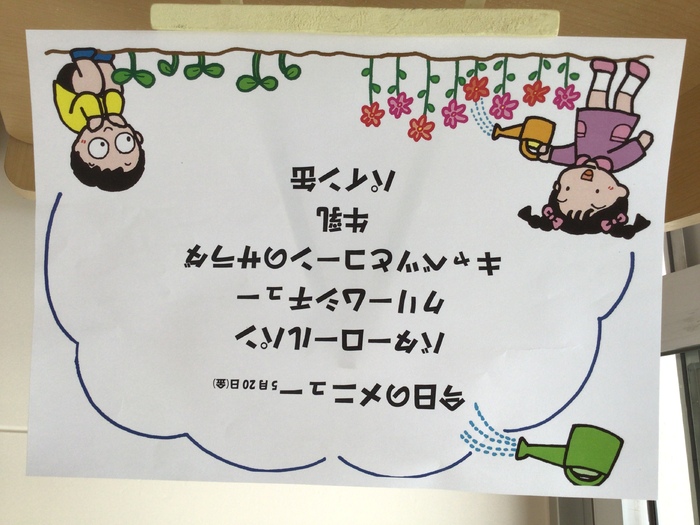 今日のメニュー 5月20日(金)
バターロールパン
クリームシチュー
キャベツとコーンのサラダ
牛乳
パイン缶